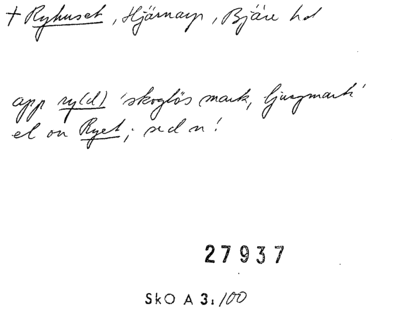 + Ryhuset, Hjärnarp, Bjäre hd
app ry(d) 'skoglös mark, ljungmark'
el on Ryet; se d n!
27937
SkO A 3: 100